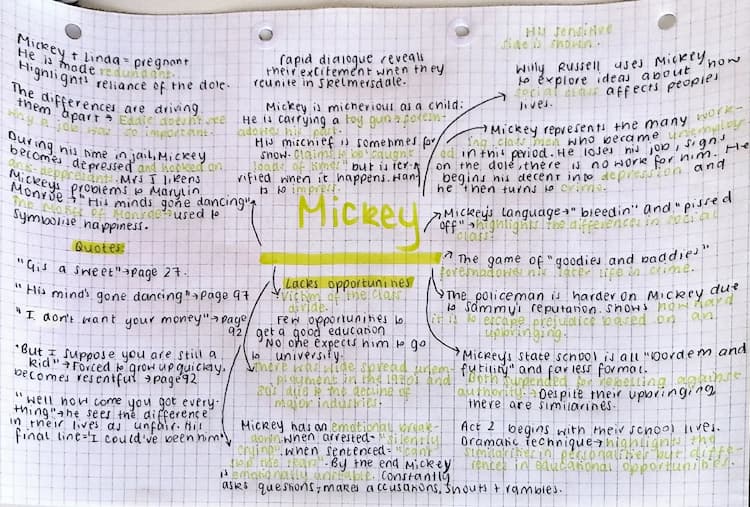 Mickey + Linda = pregnant
He is made redundant.
Highlights reliance of the dole.
The differences are driving
them apart → Eddie doesn't see
why a job was so important.
During his time in jail, Mickey
becomes depressed and hooked on
anti-deppresants. Mrs J likens
Mickeys problems to Marylin
Monroe → "His minds gone dancing"
The motifs of Monroe used to
symbolise happiness.
Quotes
"Gis a sweet" → page 27.
"His mind's gone dancing" → page 97
"I don't want your money" → page
92
"But I suppose you are still a
kid" → Forced to grow up quickly,
becomes resentful → page 92
"Well how come you got every-
thing" → he sees the difference
in their lives as unfair. His
final line = "I could've been him"
rapid dialogue reveals
their excitement when they
reunite in Skelmersdale.
Mickey is micherious as a child:
He is carrying a toy gun →
His mischief is sometimes for
show. Claims to be "caught
loads of times" but is terr-
ified when it happens. Want
is to impress.
Mickey
Lacks opportunines
Victim of the class
divide.
Few opportunities to
get a good education
No one expects him to go
to university.
There was wide spread unem-
ployment in the 1970s and
80s due to the decline of
major industries.
Mickey has an emotional break-
down when arrested = "silently
crying". When sentenced =
By the end Mickey
is emotionally unstable. Constantly
asks questions, makes accusations, shouts + rambles.
His sensitive
side is shown.
Willy Russell uses Mickey
to explore ideas about how
social class affects peoples
lives.
Mickey represents the many work-
ing class men who became unemploy-
ed in this period. He loses his job, signs
on the dole, there is no work for him. He
begins his decent into depression and
he then turns to crime.
Mickey's language → "bleedin" and "pissed
off" → highlights the differences in social
class.
The game of "goodies and baddies"
foreshadows his later life in crime.
The policeman is harder on Mickey due
to Sammy's reputation. Shows how hard
it is to escape prejudice based on an
upbringing.
Mickeys state school is all "boredem and
futility" and far less formal.
Both suspended for rebelling against
authority. → Despite their upbringing
there are similarines.
Act 2 begins with their school lives.
Dramatic technique → highlights the
similarities in personalities but diffe-
rences in educational opportunities.